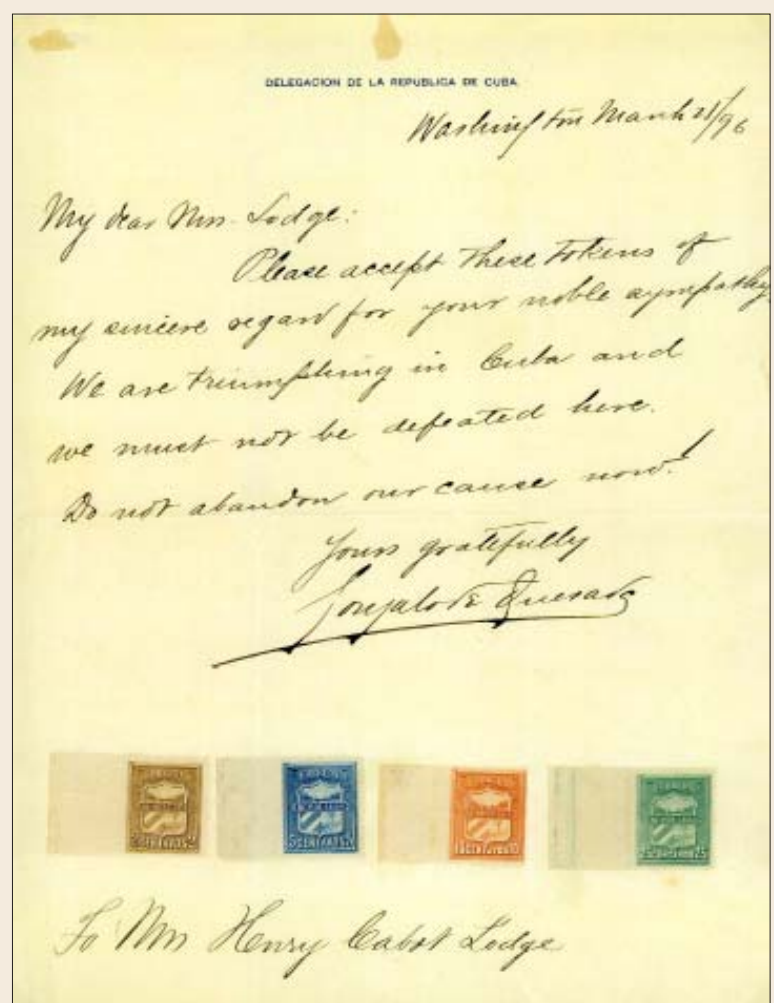 DELEGACION DE LA REPUBLICA DE CUBA.
Washington March 21/96
My dear Mrs. Lodge:
Please accept these tokens of
my sincere regard for your noble sympathy.
We are triumphing in Cuba and
we must not be defeated here.
Do not abandon our cause now!
Yours gratefully
Gonzalo de Quesada
2 CENTAVOS 2
5 CENTAVOS 5
10 CENTAVOS 10
25 25
To Mrs Henry Cabot Lodge